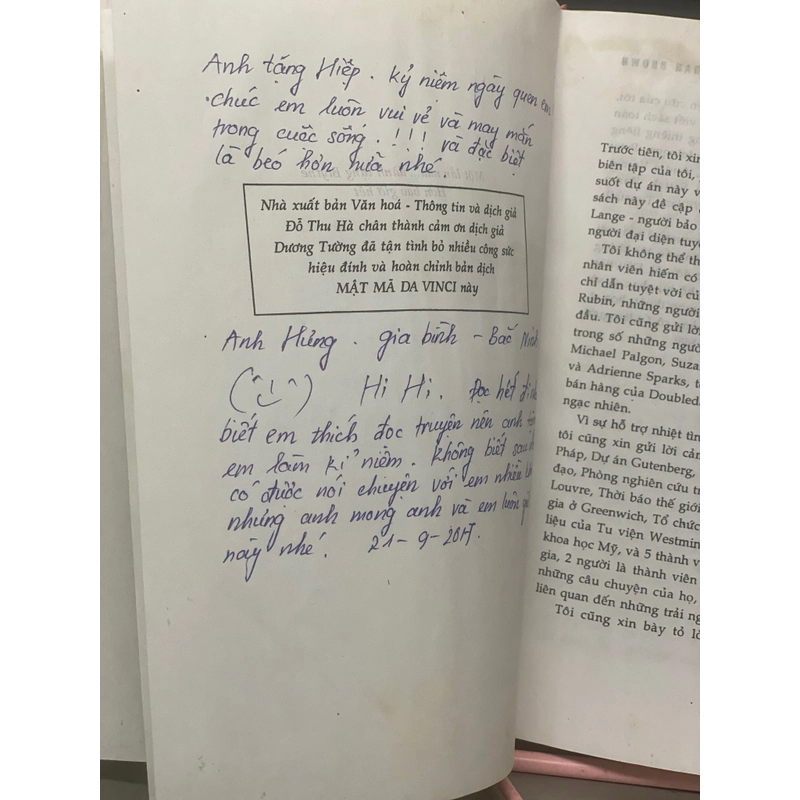 Anh tặng Hiệp. Kỷ niệm ngày quen em
chúc em luôn vui vẻ và may mắn
trong cuộc sống. !!! và đặc biệt
là béo hơn nữa nhé.
Nhà xuất bản Văn hoá - Thông tin và dịch giả
Đỗ Thu Hà chân thành cảm ơn dịch giả
Dương Tường đã tận tình bỏ nhiều công sức
hiệu đính và hoàn chỉnh bản dịch
MẬT MÃ DA VINCI này
Anh Hưng. gia bình - Bắc Ninh
Hi Hi. Đọc hết đi
biết em thích đọc truyện nên anh
em làm kỉ niệm. Không biết sau
có được nói chuyện với em nhiều
nhưng anh mong anh và em luôn
này nhé. 21-9-2017.
DAN BROWN
Trước tiên, tôi xin
biên tập của tôi,
suốt dự án này v
sách này đề cập
Lange - người bảo
người đại diện tuy
Tôi không thể th
nhân viên hiếm có
chỉ dẫn tuyệt vời củ
Rubin, những người
đầu. Tôi cũng gửi lời
trong số những ngườ
Michael Palgon, Suza
và Adrienne Sparks, t
bán hàng của Doubled
ngạc nhiên.
Vì sự hỗ trợ nhiệt tìn
tôi cũng xin gửi lời cảm
Pháp, Dự án Gutenberg,
đạo, Phòng nghiên cứu t
Louvre, Thời báo thế giới
gia ở Greenwich, Tổ chức
liệu của Tu viện Westmin
khoa học Mỹ, và 5 thành v
gia, 2 người là thành viên
những câu chuyện của họ,
liên quan đến những trải ng
Tôi cũng xin bày tỏ lò